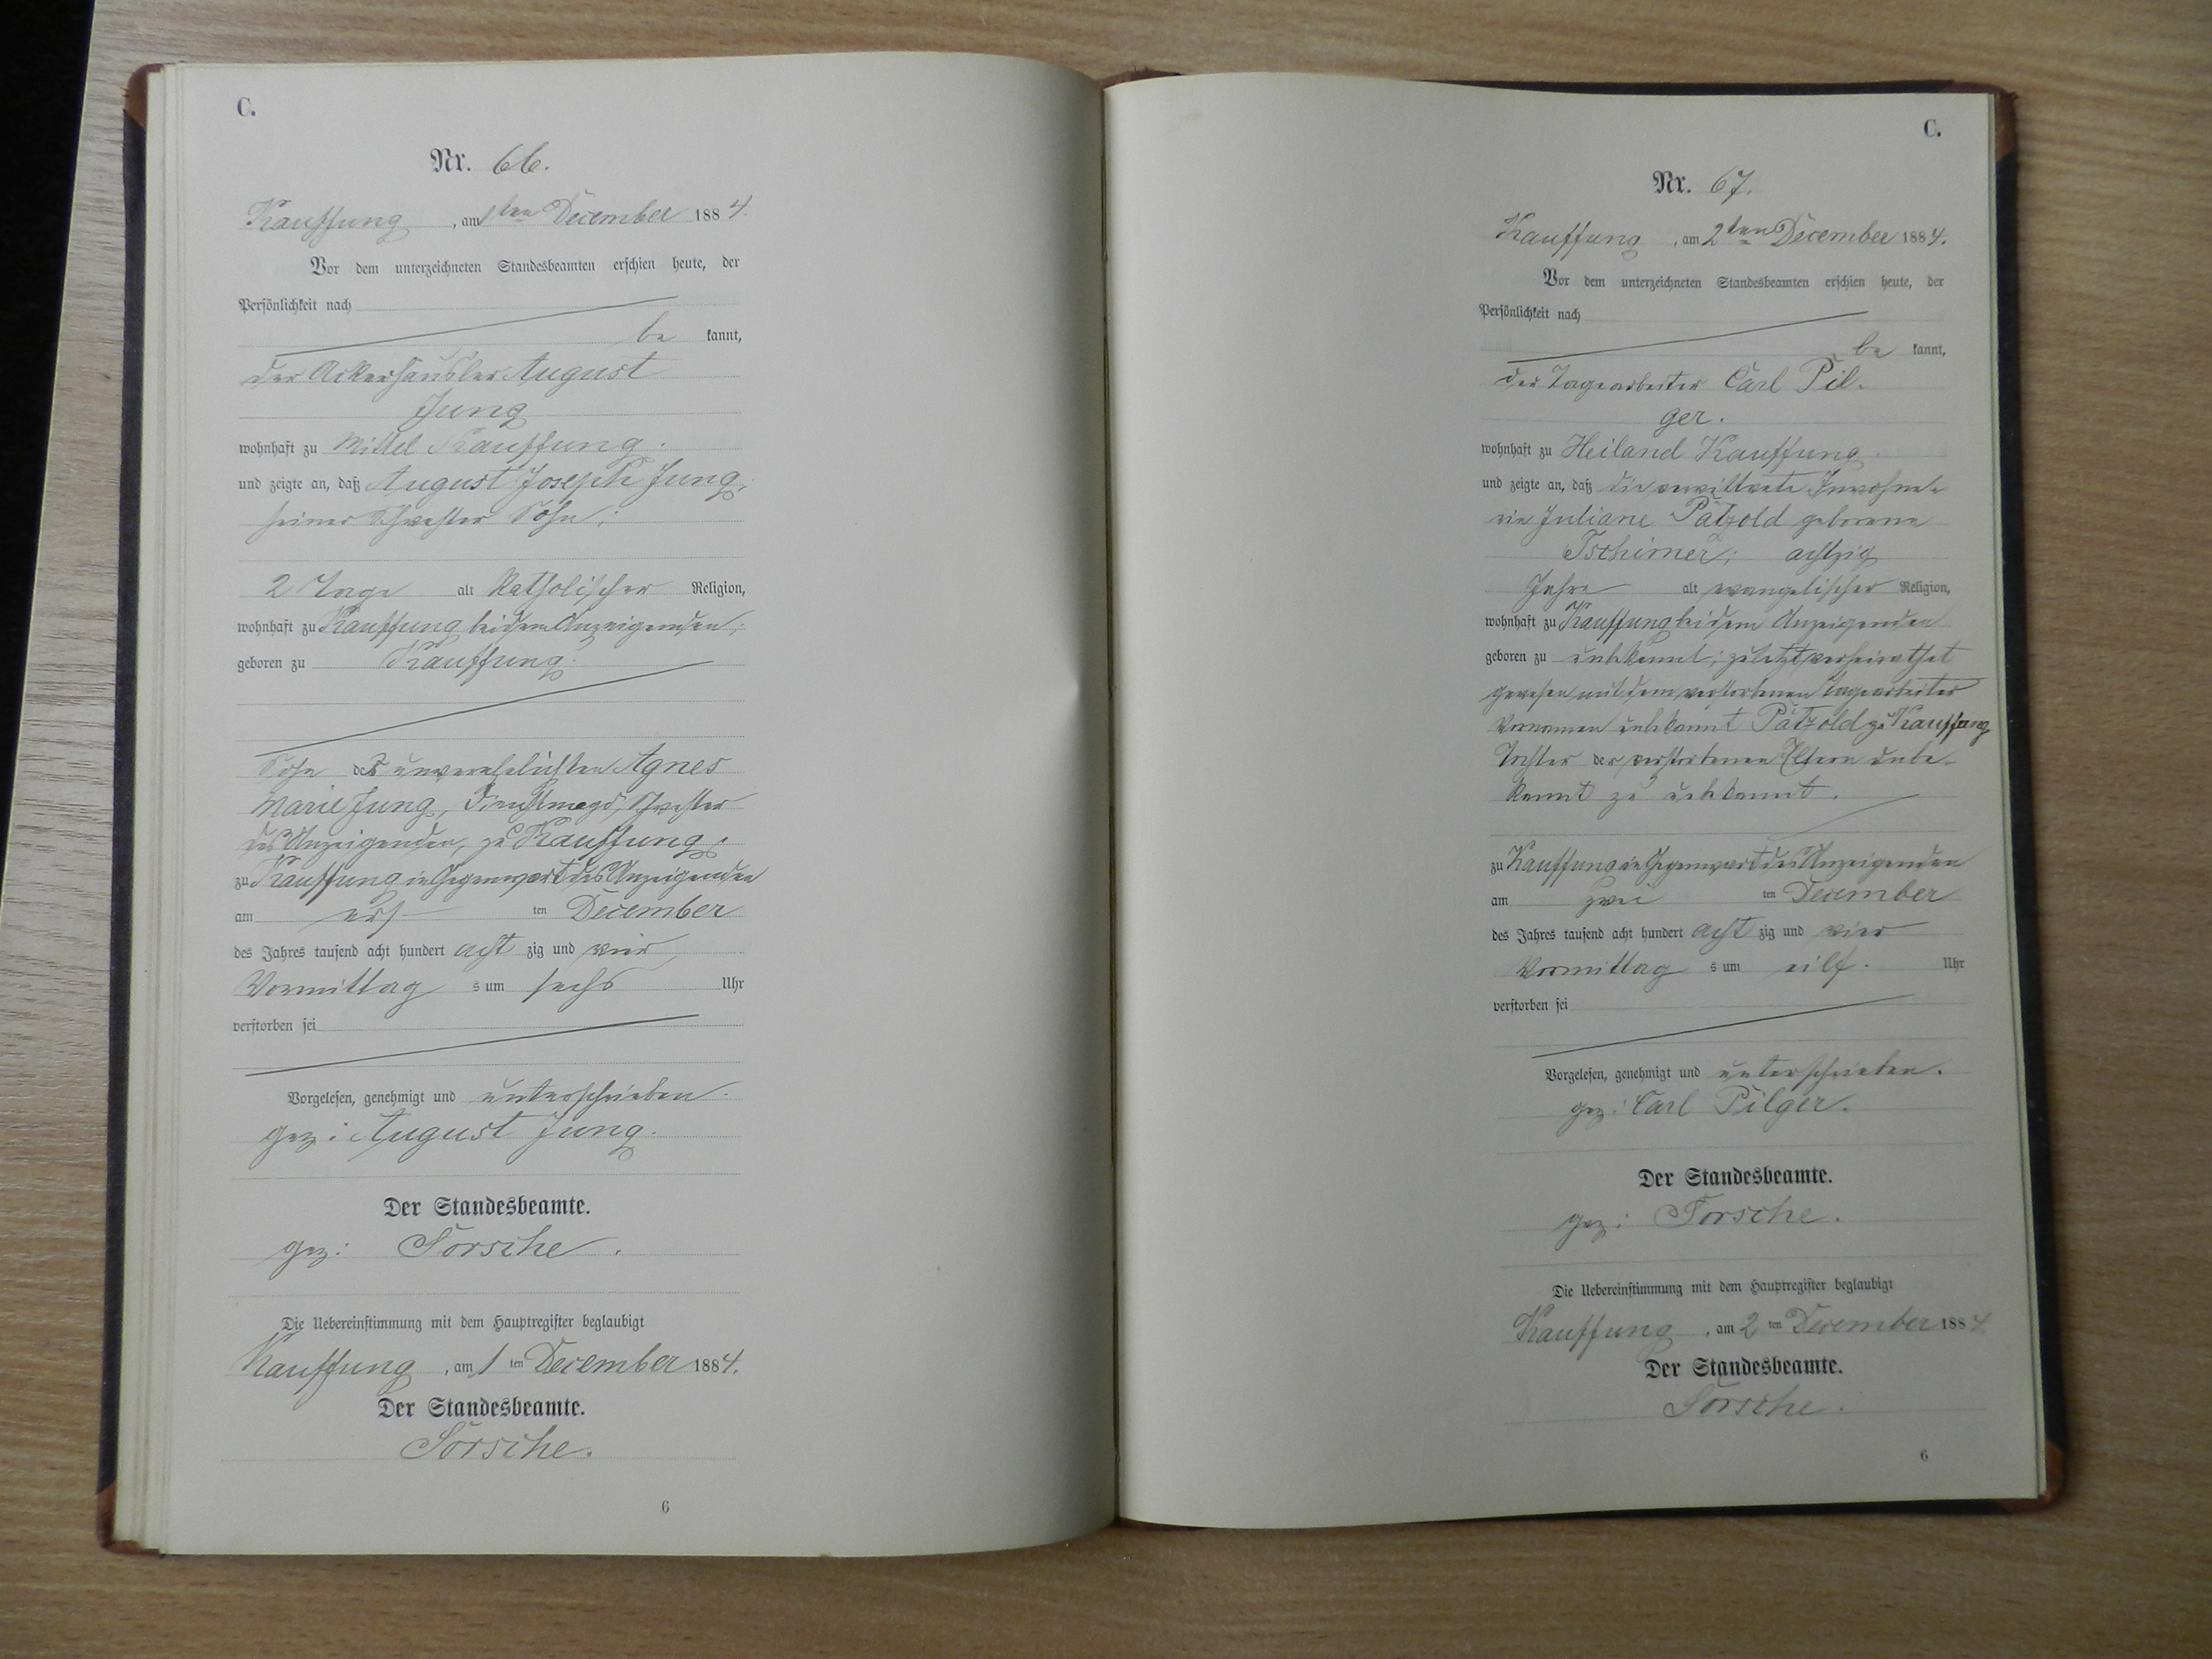 C.
Nr. 66.
Kauffung, am 1ten December 1884.
Vor dem unterzeichneten Standesbeamten erschien heute, der
Persönlichkeit nach
be kannt,
der Ackerhäusler August
Jung
wohnhaft zu Mittel Kauffung.
und zeigte an, daß August Joseph Jung,
seiner Schwester Sohn;
2 Tage alt katholischer Religion,
wohnhaft zu Kauffung bei dem Anzeigenden;
geboren zu Kauffung.
Sohn der unverehelichten Agnes
Marie Jung, Dienstmagd, Schwester
des Anzeigenden, zu Kauffung.
zu Kauffung in Gegenwart des Anzeigenden
am ers ten December
des Jahres tausend acht hundert acht zig und vier
Vormittag s um sechs Uhr
verstorben sei
Vorgelesen, genehmigt und unterschrieben.
gez: August Jung.
Der Standesbeamte.
gez: Sorsche.
Die Uebereinstimmung mit dem Hauptregister beglaubigt
Kauffung, am 1 ten December 1884.
Der Standesbeamte.
Sorsche.
6
C.
Nr. 67.
Kauffung, am 2ten December 1884.
Vor dem unterzeichneten Standesbeamten erschien heute, der
Persönlichkeit nach
be kannt,
der Tagearbeiter Carl Pil-
ger.
wohnhaft zu Heiland Kauffung.
und zeigte an, daß die verwittwete Inwohne-
rin Juliane Pätzold geborene
Tschirner; achtzig
Jahre alt evangelischer Religion,
wohnhaft zu Kauffung bei dem Anzeigenden
geboren zu unbekannt; zuletzt verheirathet
gewesen mit dem verstorbenen Tagearbeiter
Vornamen unbekannt Pätzold zu Kauffung
Tochter der verstorbenen Eltern unbe-
kannt zu unbekannt.
zu Kauffung in Gegenwart des Anzeigenden
am zwei ten December
des Jahres tausend acht hundert acht zig und vier
Vormittag s um eilf. Uhr
verstorben sei
Vorgelesen, genehmigt und unterschrieben.
gez: Carl Pilger.
Der Standesbeamte.
gez: Sorsche.
Die Uebereinstimmung mit dem Hauptregister beglaubigt
Kauffung, am 2 ten December 1884.
Der Standesbeamte.
Sorsche.
6